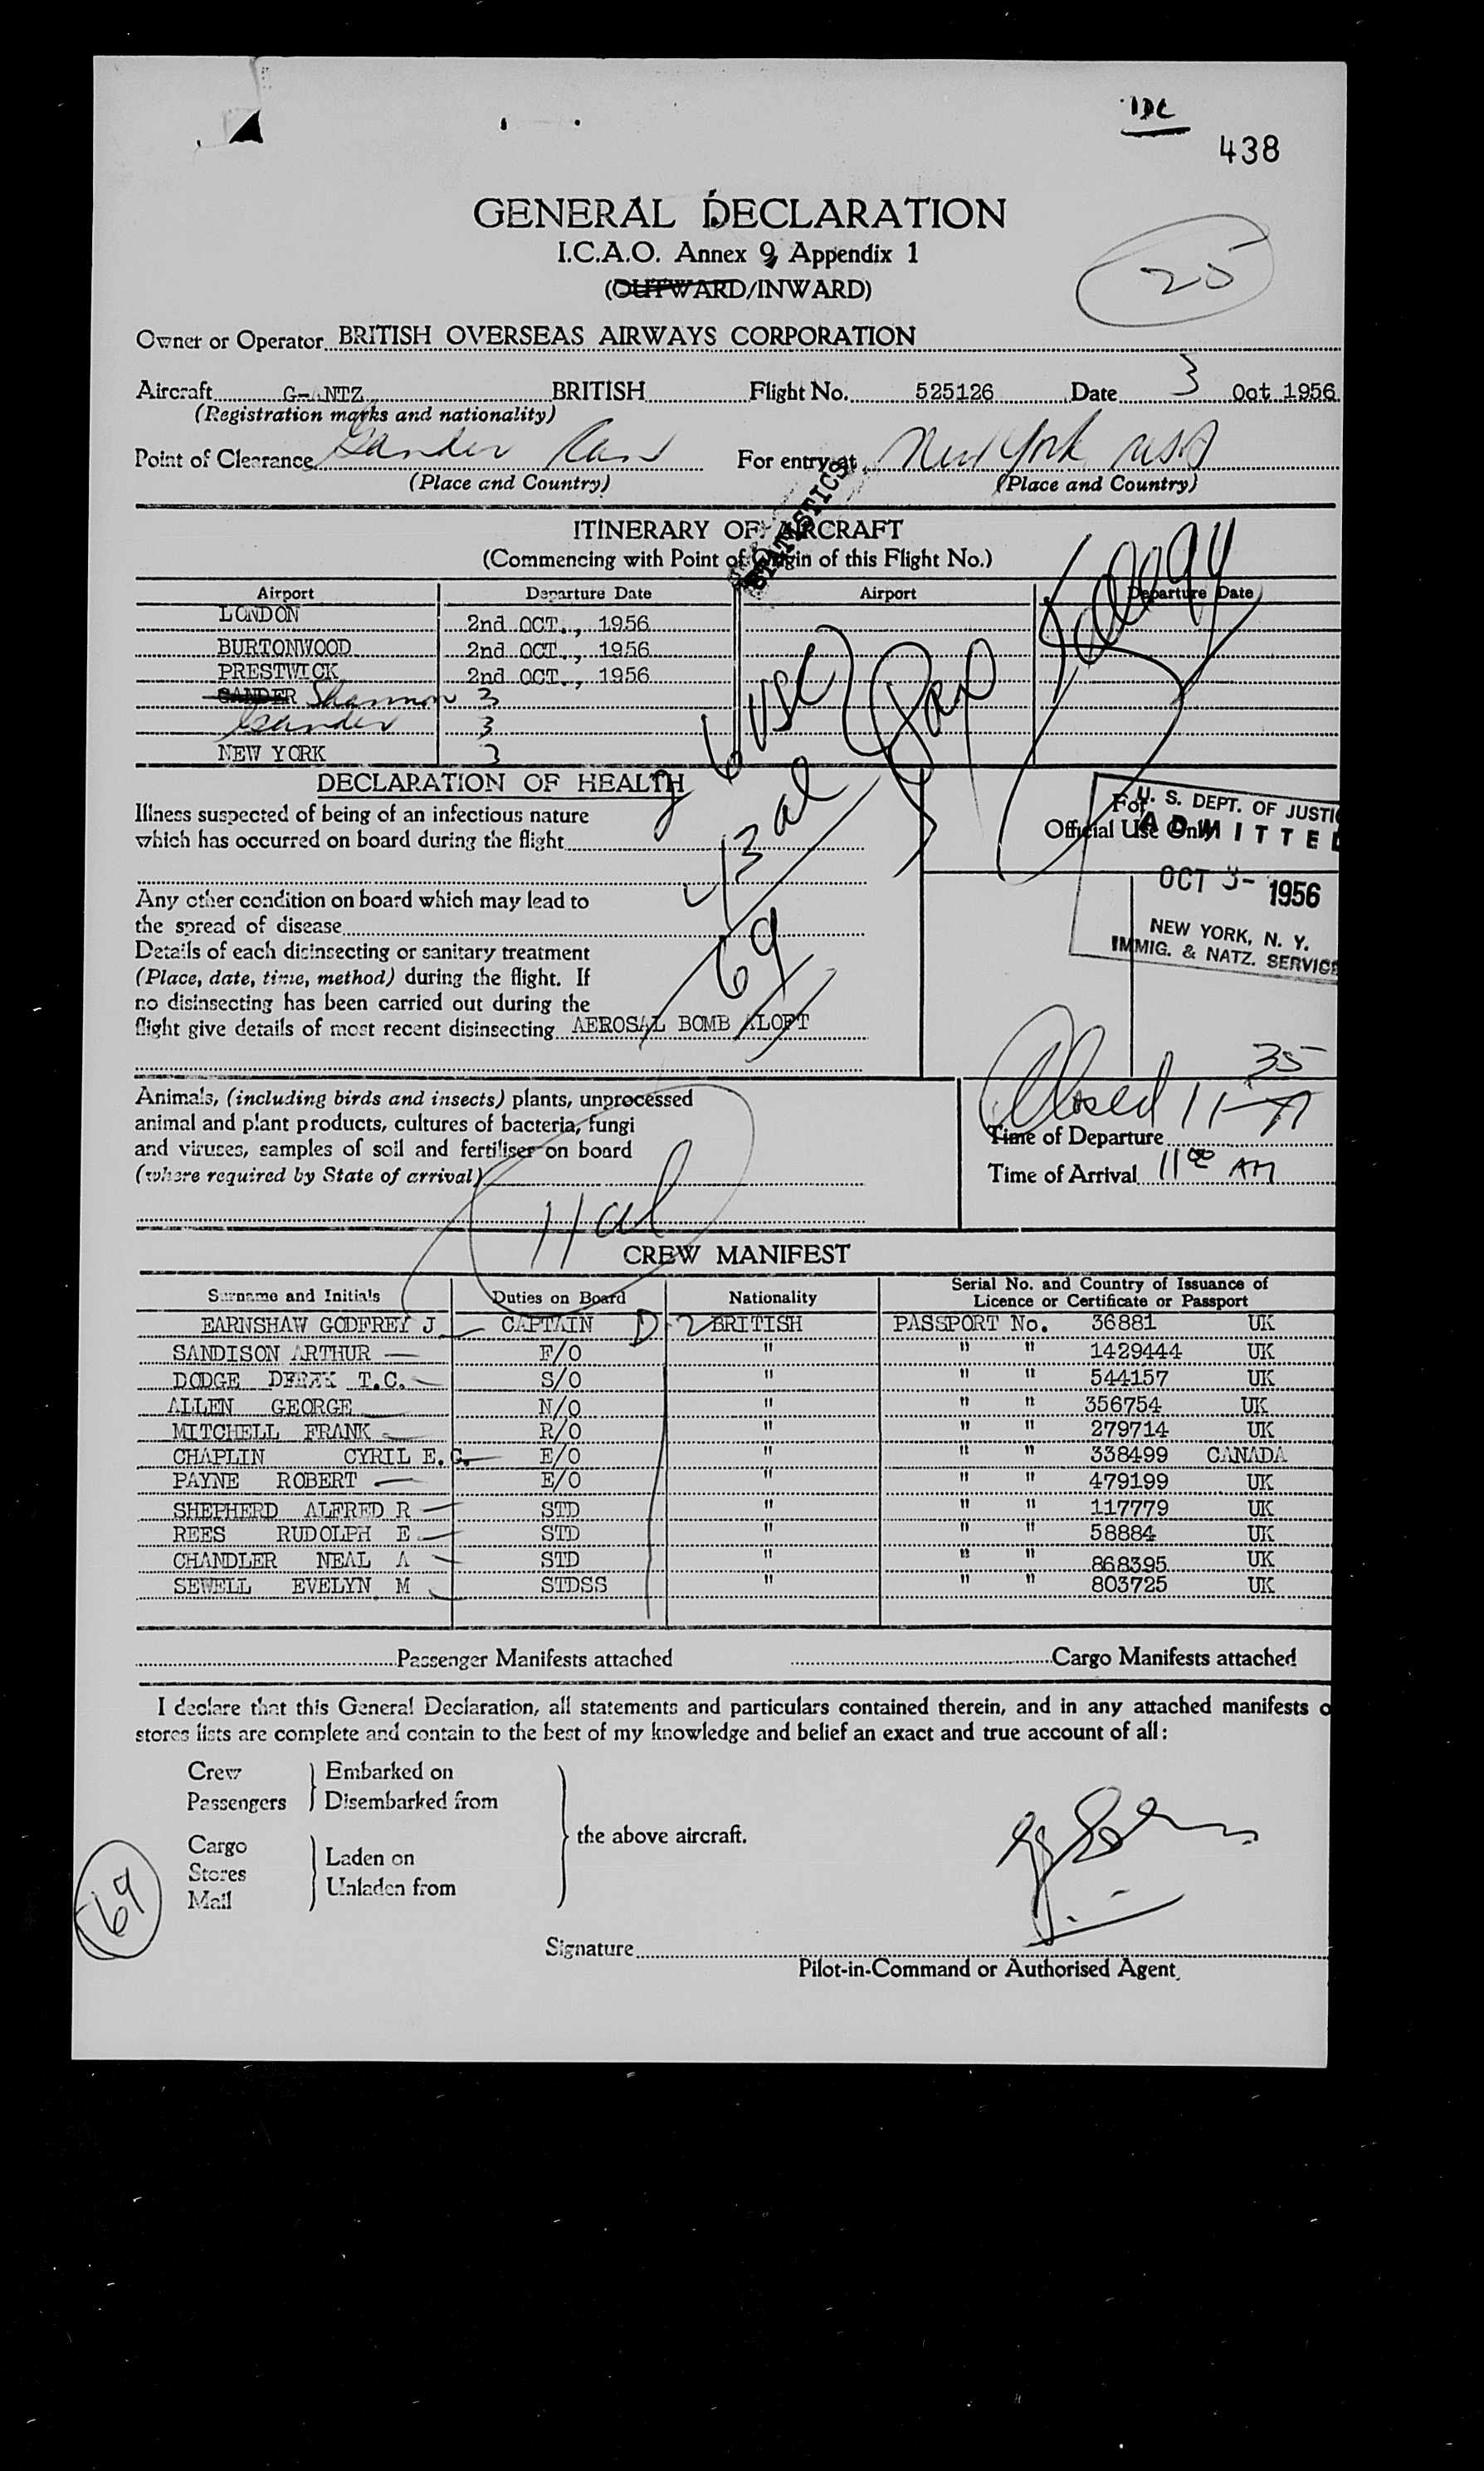 IDC
438
GENERAL DECLARATION
I.C.A.O. Annex 9, Appendix 1
(OUTWARD/INWARD)
25
Owner or Operator BRITISH OVERSEAS AIRWAYS CORPORATION
Aircraft G-ANTZ BRITISH Flight No. 525126 Date 3 Oct 1956
(Registration marks and nationality)
Point of Clearance Gander Can For entry at New York USA
(Place and Country) (Place and Country)
STATISTICS
ITINERARY OF AIRCRAFT
(Commencing with Point of Origin of this Flight No.)
Airport Departure Date Airport Departure Date
LONDON 2nd OCT., 1956
BURTONWOOD 2nd OCT., 1956
PRESTWICK 2nd OCT., 1956
GANDER Shannon 3
Gander 3
NEW YORK 3
6 USC
43 al
69
DECLARATION OF HEALTH
Illness suspected of being of an infectious nature
which has occurred on board during the flight
Any other condition on board which may lead to
the spread of disease
Details of each disinsecting or sanitary treatment
(Place, date, time, method) during the flight. If
no disinsecting has been carried out during the
flight give details of most recent disinsecting AEROSAL BOMB ALOFT
For
Official Use Only
U. S. DEPT. OF JUSTIC
ADMITTED
OCT 3- 1956
NEW YORK, N. Y.
IMMIG. & NATZ. SERVICE
Animals, (including birds and insects) plants, unprocessed
animal and plant products, cultures of bacteria, fungi
and viruses, samples of soil and fertiliser on board
(where required by State of arrival)
11 al
Closed 11 35
Time of Departure
Time of Arrival 11 00 AM
CREW MANIFEST
Surname and Initials Duties on Board Nationality Serial No. and Country of Issuance of
Licence or Certificate or Passport
EARNSHAW GODFREY J CAPTAIN D-2 BRITISH PASSPORT No. 36881 UK
SANDISON ARTHUR F/O " " " 1429444 UK
DODGE DEREK T.C. S/O " " " 544157 UK
ALLEN GEORGE N/O " " " 356754 UK
MITCHELL FRANK R/O " " " 279714 UK
CHAPLIN CYRIL E.C. E/O " " " 338499 CANADA
PAYNE ROBERT E/O " " " 479199 UK
SHEPHERD ALFRED R STD " " " 117779 UK
REES RUDOLPH E STD " " " 58884 UK
CHANDLER NEAL A STD " " " 868395 UK
SEWELL EVELYN M STDSS " " " 803725 UK
Passenger Manifests attached Cargo Manifests attached
I declare that this General Declaration, all statements and particulars contained therein, and in any attached manifests o
stores lists are complete and contain to the best of my knowledge and belief an exact and true account of all:
Crew Embarked on
Passengers Disembarked from
the above aircraft.
Cargo
Laden on
Stores
Unladen from
Mail
69
Signature
Pilot-in-Command or Authorised Agent